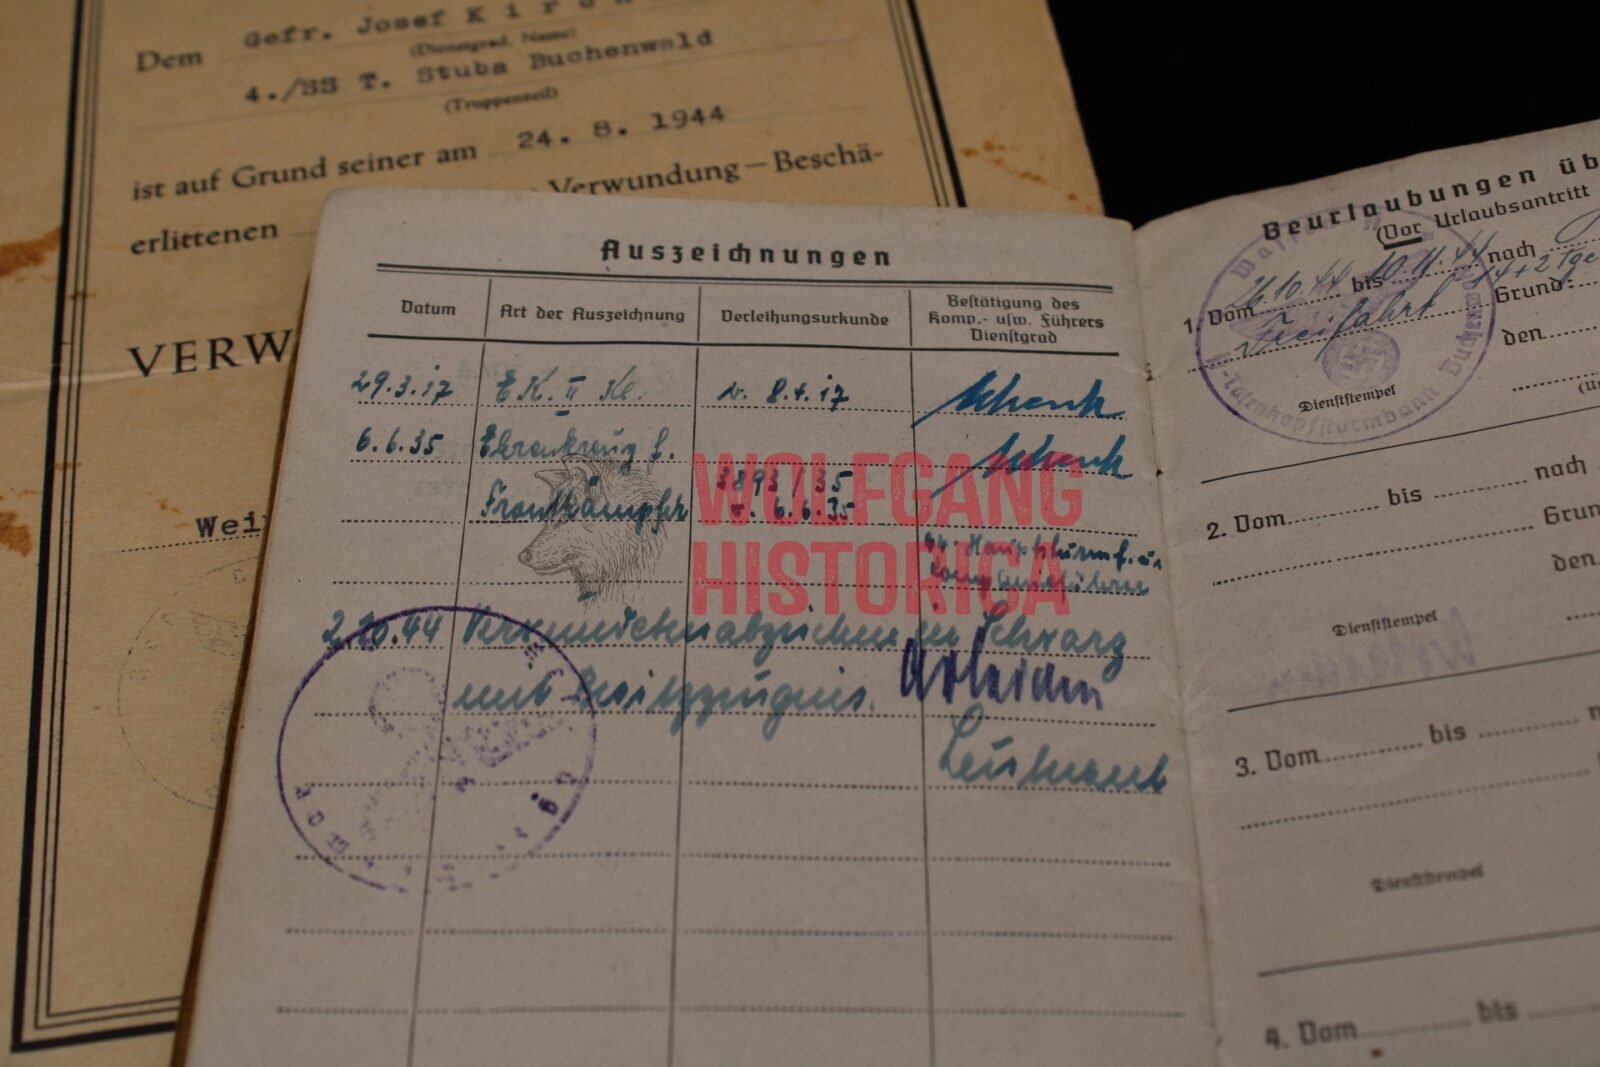 Dem Gefr. Josef
(Dienstgrad, Name)
4./SS T. Stuba Buchenwald
(Truppenteil)
ist auf Grund seiner am 24. 8. 1944
Verwundung – Beschä-
erlittenen
VERW
Wei
Auszeichnungen
Datum
Art der Auszeichnung
Verleihungsurkunde
Bestätigung des
Komp.- usw. Führers
Dienstgrad
29.3.17 EK. II Kl. v. 8.4.17 Schenk
6.6.35 Ehrenkreuz f. Schenk
Frontkämpfer 3893/35
v. 6.6.35
WOLFGANG
HISTORICA
2.10.44 Verwundetenabzeichen in Schwarz
mit Besitzzeugnis.
Leutnant
Beurlaubungen üb
(Vor Urlaubsantritt
1. Vom 26.10.44 bis 10.11.44 nach
Freifahrt Grund:
den
Dienststempel
Totenkopfsturmbann Buchenwald
2. Vom bis nach
Grun
den
Dienststempel
3. Vom bis n
Dienststempel
4. Vom bis